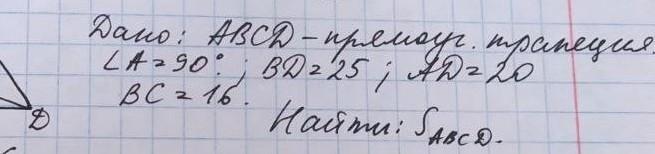 Дано: ABCD - прямоуг. трапеция.
∠A = 90°; BD = 25; AD = 20
BC = 16.
D
Найти: S_ABCD.